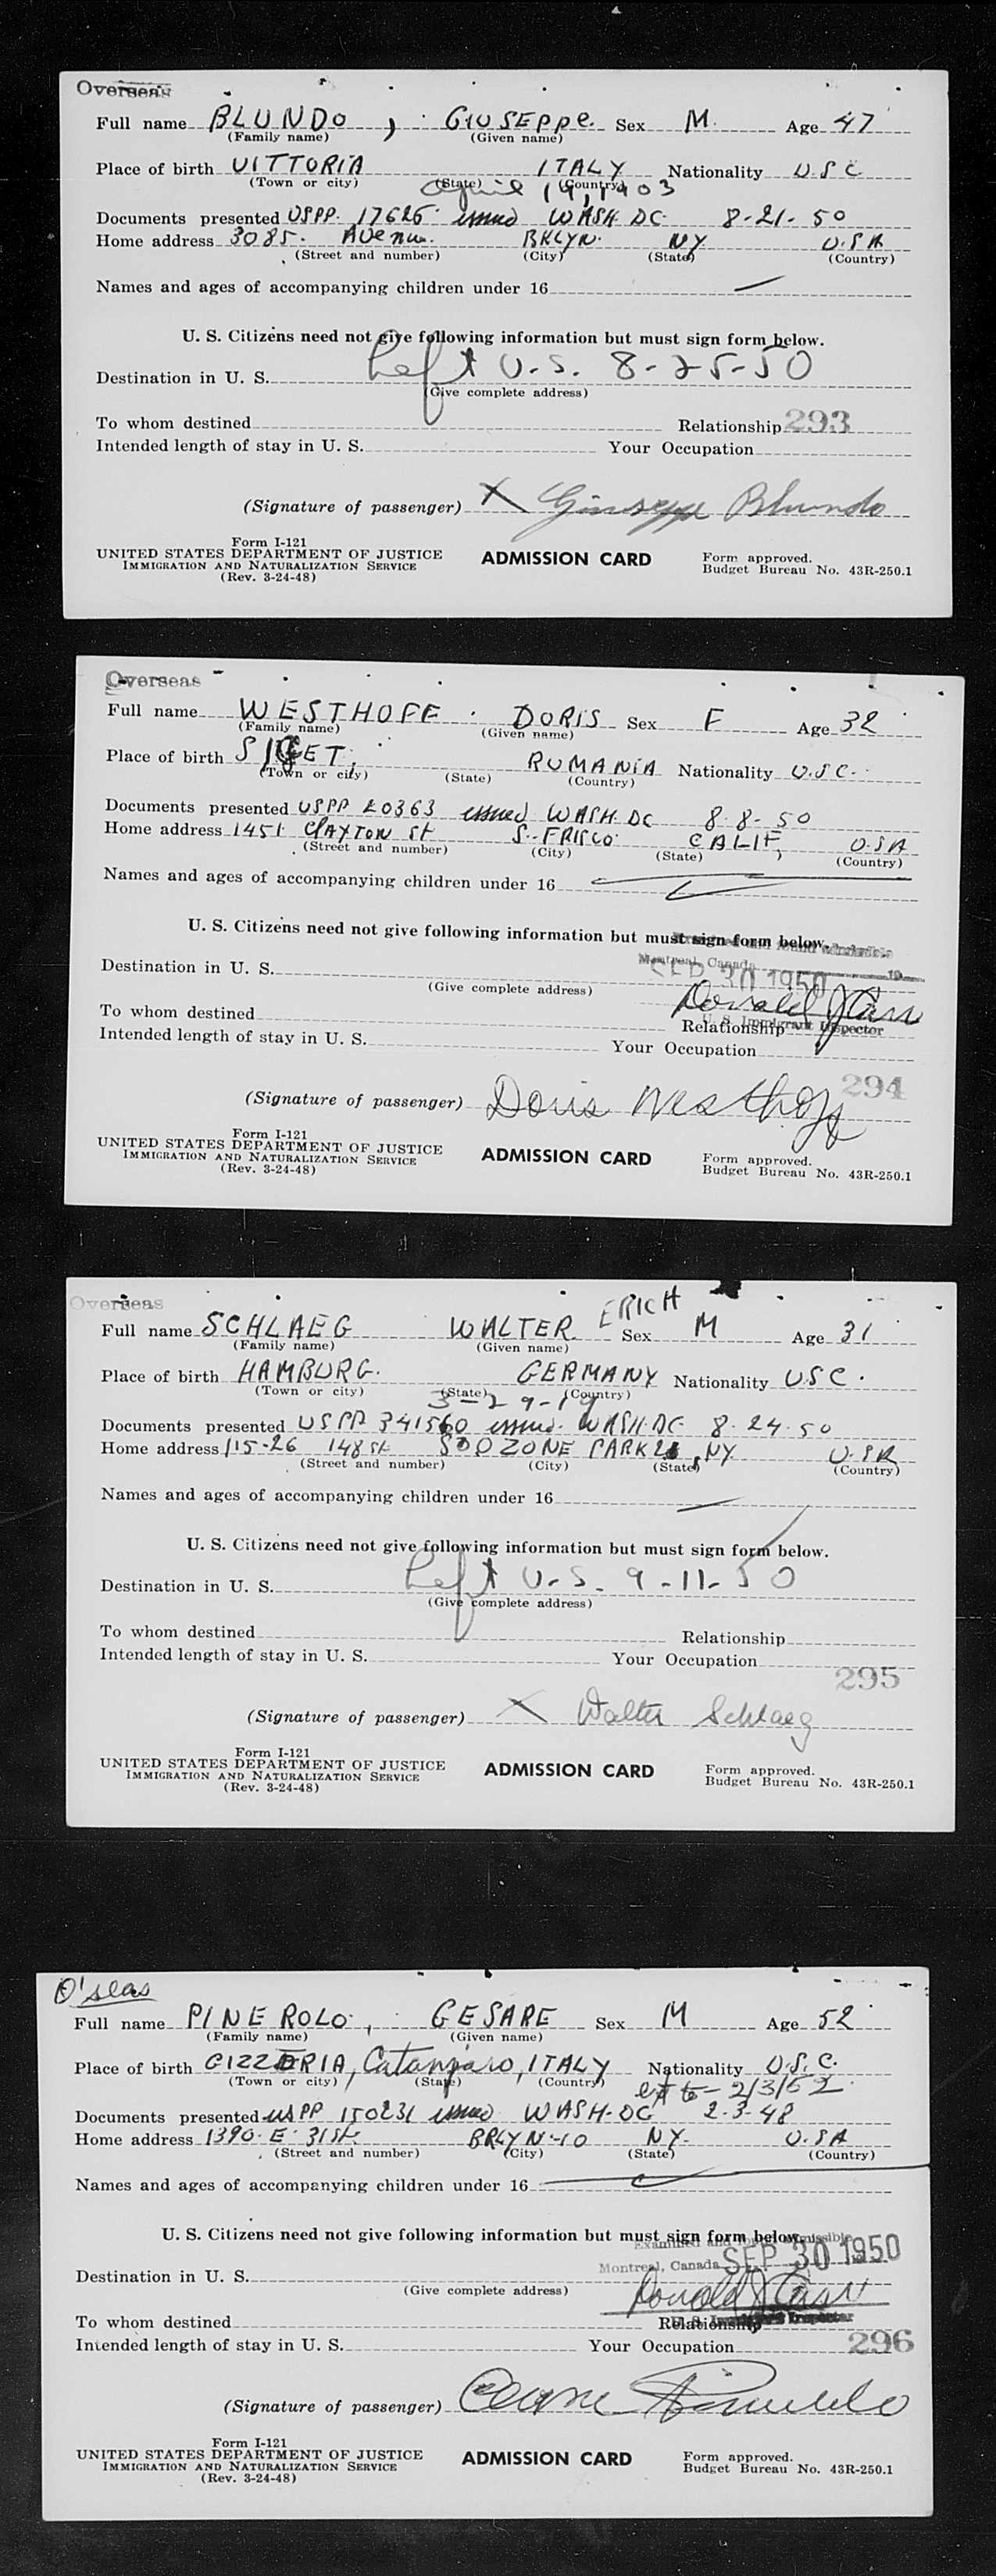 Overseas
Full name BLUNDO , GIUSEPPE. Sex M. Age 47
(Family name) (Given name)
Place of birth VITTORIA ITALY Nationality U.S.C.
(Town or city) (State) (Country)
April 19, 1903
Documents presented USPP. 17626 issued WASH DC. 8-21-50
Home address 3085. Avenu. BKLYN. NY U.S.A
(Street and number) (City) (State) (Country)
Names and ages of accompanying children under 16
U. S. Citizens need not give following information but must sign form below.
Destination in U. S. Left U.S. 8-25-50
(Give complete address)
To whom destined Relationship 293
Intended length of stay in U. S. Your Occupation
(Signature of passenger) X Giuseppe Blundo
Form I-121
UNITED STATES DEPARTMENT OF JUSTICE ADMISSION CARD Form approved.
IMMIGRATION AND NATURALIZATION SERVICE Budget Bureau No. 43R-250.1
(Rev. 3-24-48)
Overseas
Full name WESTHOFF . DORIS Sex F Age 32
(Family name) (Given name)
Place of birth SIGET, RUMANIA Nationality U.S.C.
(Town or city) (State) (Country)
Documents presented USPP 20363 issued WASH. DC 8-8-50
Home address 1451 CLAYTON St S. FRISCO CALIF, U.S.A
(Street and number) (City) (State) (Country)
Names and ages of accompanying children under 16
U. S. Citizens need not give following information but must sign form below.
Montreal, Canada
Destination in U. S. SEP 30 1950 19
(Give complete address)
Donald J Carr
To whom destined Relationship U. S. Immigrant Inspector
Intended length of stay in U. S. Your Occupation
294
(Signature of passenger) Doris Westhoff
Form I-121
UNITED STATES DEPARTMENT OF JUSTICE ADMISSION CARD Form approved.
IMMIGRATION AND NATURALIZATION SERVICE Budget Bureau No. 43R-250.1
(Rev. 3-24-48)
Overseas
Full name SCHLAEG WALTER ERICH Sex M Age 31
(Family name) (Given name)
Place of birth HAMBURG. GERMANY Nationality USC.
(Town or city) (State) (Country)
3-29-19
Documents presented USPP 341560 issued WASH DC 8-24-50
Home address 115-26 148 St SO OZONE PARK NY U.S.A
(Street and number) (City) (State) (Country)
Names and ages of accompanying children under 16
U. S. Citizens need not give following information but must sign form below.
Destination in U. S. Left U.S. 9-11-50
(Give complete address)
To whom destined Relationship
Intended length of stay in U. S. Your Occupation
295
(Signature of passenger) X Walter Schlaeg
Form I-121
UNITED STATES DEPARTMENT OF JUSTICE ADMISSION CARD Form approved.
IMMIGRATION AND NATURALIZATION SERVICE Budget Bureau No. 43R-250.1
(Rev. 3-24-48)
O'seas
Full name PINEROLO, CESARE Sex M Age 52
(Family name) (Given name)
Place of birth GIZZERIA, Catanzaro, ITALY Nationality U.S.C.
(Town or city) (State) (Country)
ext to 2/3/52
Documents presented USPP 150231 issued WASH-DC 2-3-48
Home address 1390 E 31 St. BRLYN-10 NY. U.SA
(Street and number) (City) (State) (Country)
Names and ages of accompanying children under 16
U. S. Citizens need not give following information but must sign form below.
Examined and admissible
Montreal, Canada SEP 30 1950
Destination in U. S.
(Give complete address)
Donald J Carr
To whom destined Relationship
Intended length of stay in U. S. Your Occupation 296
(Signature of passenger) Cesare Pinerolo
Form I-121
UNITED STATES DEPARTMENT OF JUSTICE ADMISSION CARD Form approved.
IMMIGRATION AND NATURALIZATION SERVICE Budget Bureau No. 43R-250.1
(Rev. 3-24-48)